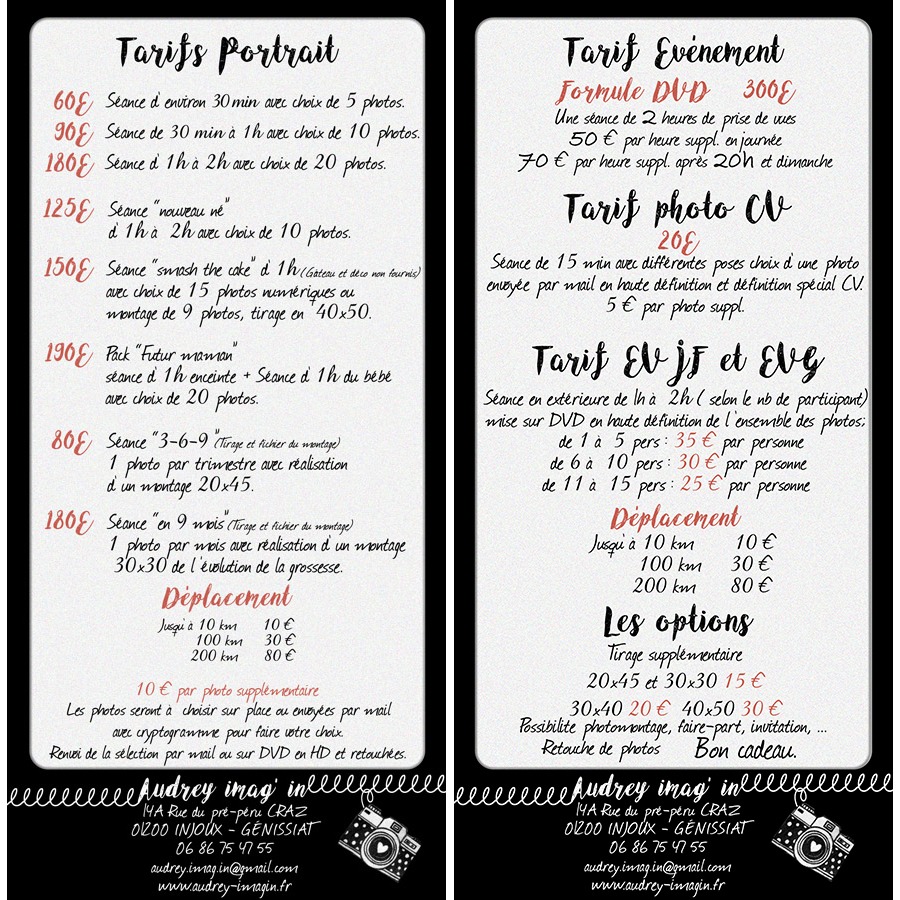 Tarifs Portrait
60€ Séance d'environ 30 min avec choix de 5 photos.
90€ Séance de 30 min à 1h avec choix de 10 photos.
180€ Séance d'1h à 2h avec choix de 20 photos.
125€ Séance "nouveau né"
d'1h à 2h avec choix de 10 photos.
150€ Séance "smash the cake" d'1h (Gâteau et déco non fournis)
avec choix de 15 photos numériques ou
montage de 9 photos, tirage en 40x50.
190€ Pack "Futur maman"
séance d'1h enceinte + Séance d'1h du bébé
avec choix de 20 photos.
80€ Séance "3-6-9" (Tirage et fichier du montage)
1 photo par trimestre avec réalisation
d'un montage 20x45.
180€ Séance "en 9 mois" (Tirage et fichier du montage)
1 photo par mois avec réalisation d'un montage
30x30 de l'évolution de la grossesse.
Déplacement
Jusqu'à 10 km 10 €
100 km 30 €
200 km 80 €
10 € par photo supplémentaire
Les photos seront à choisir sur place ou envoyées par mail
avec cryptogramme pour faire votre choix.
Renvoi de la sélection par mail ou sur DVD en HD et retouchées.
Audrey imag' in
14A Rue du pré-péru CRAZ
01200 INJOUX - GÉNISSIAT
06 86 75 47 55
audrey.imag.in@gmail.com
www.audrey-imagin.fr
Tarif Evénement
Formule DVD 300€
Une séance de 2 heures de prise de vues
50 € par heure suppl. en journée
70 € par heure suppl. après 20h et dimanche
Tarif photo CV
20€
Séance de 15 min avec différentes poses choix d'une photo
envoyée par mail en haute définition et définition spécial CV.
5 € par photo suppl.
Tarif EVJF et EVG
Séance en extérieure de 1h à 2h ( selon le nb de participant)
mise sur DVD en haute définition de l'ensemble des photos;
de 1 à 5 pers : 35 € par personne
de 6 à 10 pers : 30 € par personne
de 11 à 15 pers : 25 € par personne
Déplacement
Jusqu'à 10 km 10 €
100 km 30 €
200 km 80 €
Les options
Tirage supplémentaire
20x45 et 30x30 15 €
30x40 20 € 40x50 30 €
Possibilité photomontage, faire-part, invitation, ...
Retouche de photos Bon cadeau.
Audrey imag' in
14A Rue du pré-péru CRAZ
01200 INJOUX - GÉNISSIAT
06 86 75 47 55
audrey.imag.in@gmail.com
www.audrey-imagin.fr